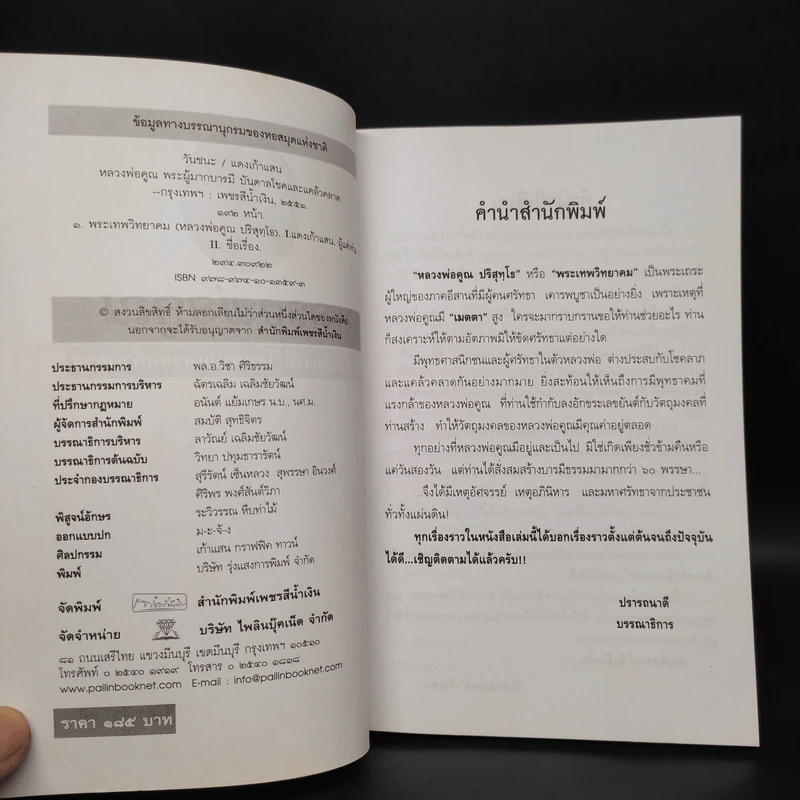 ข้อมูลทางบรรณานุกรมของหอสมุดแห่งชาติ
วันชนะ / แดงเก้าแสน
หลวงพ่อคูณ พระผู้มากบารมี บันดาลโชคและแคล้วคลาด.
--กรุงเทพฯ : เพชรสีน้ำเงิน, ๒๕๕๑.
๑๙๒ หน้า.
๑. พระเทพวิทยาคม (หลวงพ่อคูณ ปริสุทฺโธ). I.แดงเก้าแสน, ผู้แต่งร่วม
II. ชื่อเรื่อง.
๒๙๔.๓๐๙๒๒
ISBN ๙๗๘-๙๗๔-๑๐-๑๓๕๙-๓
© สงวนลิขสิทธิ์ ห้ามลอกเลียนไม่ว่าส่วนหนึ่งส่วนใดของหนังสือ
นอกจากจะได้รับอนุญาตจาก สำนักพิมพ์เพชรสีน้ำเงิน
ประธานกรรมการ พล.อ.วิชา ศิริธรรม
ประธานกรรมการบริหาร ฉัตรเฉลิม เฉลิมชัยวัฒน์
ที่ปรึกษากฎหมาย อนันต์ แย้มเกษร น.บ., นศ.ม.
ผู้จัดการสำนักพิมพ์ สมบัติ สุทธิจิตร
บรรณาธิการบริหาร ลาวัณย์ เฉลิมชัยวัฒน์
บรรณาธิการต้นฉบับ วิทยา ปทุมธารารัตน์
ประจำกองบรรณาธิการ สุรีรัตน์ เซ็นหลวง สุพรรษา อินวงศ์
ศิริพร พงศ์สันติวิภา
พิสูจน์อักษร ระวิวรรณ หีบทำไม้
ออกแบบปก ม-ะ-จั-ง
ศิลปกรรม เก้าแสน กราฟฟิค ทาวน์
พิมพ์ บริษัท รุ่งแสงการพิมพ์ จำกัด
จัดพิมพ์ สำนักพิมพ์เพชรสีน้ำเงิน
จัดจำหน่าย บริษัท ไพลินบุ๊คเน็ต จำกัด
๘๑ ถนนเสรีไทย แขวงมีนบุรี เขตมีนบุรี กรุงเทพฯ ๑๐๕๑๐
โทรศัพท์ ๐ ๒๕๔๐ ๑๙๑๙ โทรสาร ๐ ๒๕๔๐ ๑๘๑๘
www.pailinbooknet.com E-mail : info@pailinbooknet.com
ราคา ๑๘๕ บาท
คำนำสำนักพิมพ์
"หลวงพ่อคูณ ปริสุทฺโธ" หรือ "พระเทพวิทยาคม" เป็นพระเถระ
ผู้ใหญ่ของภาคอีสานที่มีผู้คนศรัทธา เคารพบูชาเป็นอย่างยิ่ง เพราะเหตุที่
หลวงพ่อคูณมี "เมตตา" สูง ใครจะมากราบกรานขอให้ท่านช่วยอะไร ท่าน
ก็สงเคราะห์ให้ตามอัตภาพมิให้ขัดศรัทธาแต่อย่างใด
มีพุทธศาสนิกชนและผู้ศรัทธาในตัวหลวงพ่อ ต่างประสบกับโชคลาภ
และแคล้วคลาดกันอย่างมากมาย ยิ่งสะท้อนให้เห็นถึงการมีพุทธาคมที่
แรงกล้าของหลวงพ่อคูณ ที่ท่านใช้กำกับลงอักขระเลขยันต์กับวัตถุมงคลที่
ท่านสร้าง ทำให้วัตถุมงคลของหลวงพ่อคูณมีคุณค่าอยู่ตลอด
ทุกอย่างที่หลวงพ่อคูณมีอยู่และเป็นไป มิใช่เกิดเพียงชั่วข้ามคืนหรือ
แค่วันสองวัน แต่ท่านได้สั่งสมสร้างบารมีธรรมมามากกว่า ๖๐ พรรษา...
...จึงได้มีเหตุอัศจรรย์ เหตุอภินิหาร และมหาศรัทธาจากประชาชน
ทั่วทั้งแผ่นดิน!
ทุกเรื่องราวในหนังสือเล่มนี้ได้บอกเรื่องราวตั้งแต่ต้นจนถึงปัจจุบัน
ได้ดี...เชิญติดตามได้แล้วครับ!!
ปรารถนาดี
บรรณาธิการ